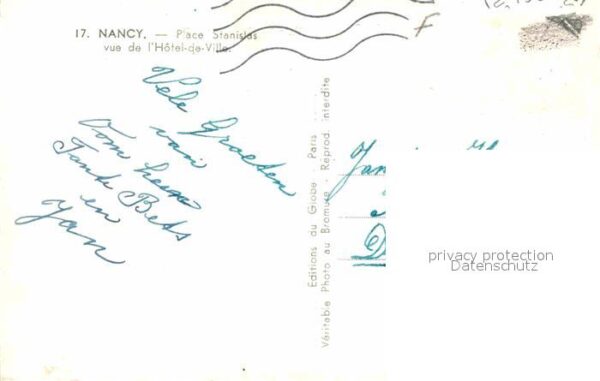 17. NANCY. — Place Stanislas
vue de l'Hôtel-de-Ville.
Vele Groeten
van
Tante Bets
en
Jan
Editions du Globe - Paris
Véritable Photo au Bromure - Reprod. interdite
Jan
privacy protection
Datenschutz